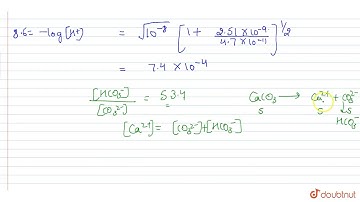 8.6 = -log[H+] = √10⁻⁸ [1 + 2.51 × 10⁻⁹ / 4.7 × 10⁻¹¹]^1/2
= 7.4 × 10⁻⁴
[HCO₃⁻] / [CO₃²⁻] = 53.4
CaCO₃ → Ca²⁺ + CO₃²⁻
S S ↓S
HCO₃⁻
[Ca²⁺] = [CO₃²⁻] + [HCO₃⁻]
doubtnut